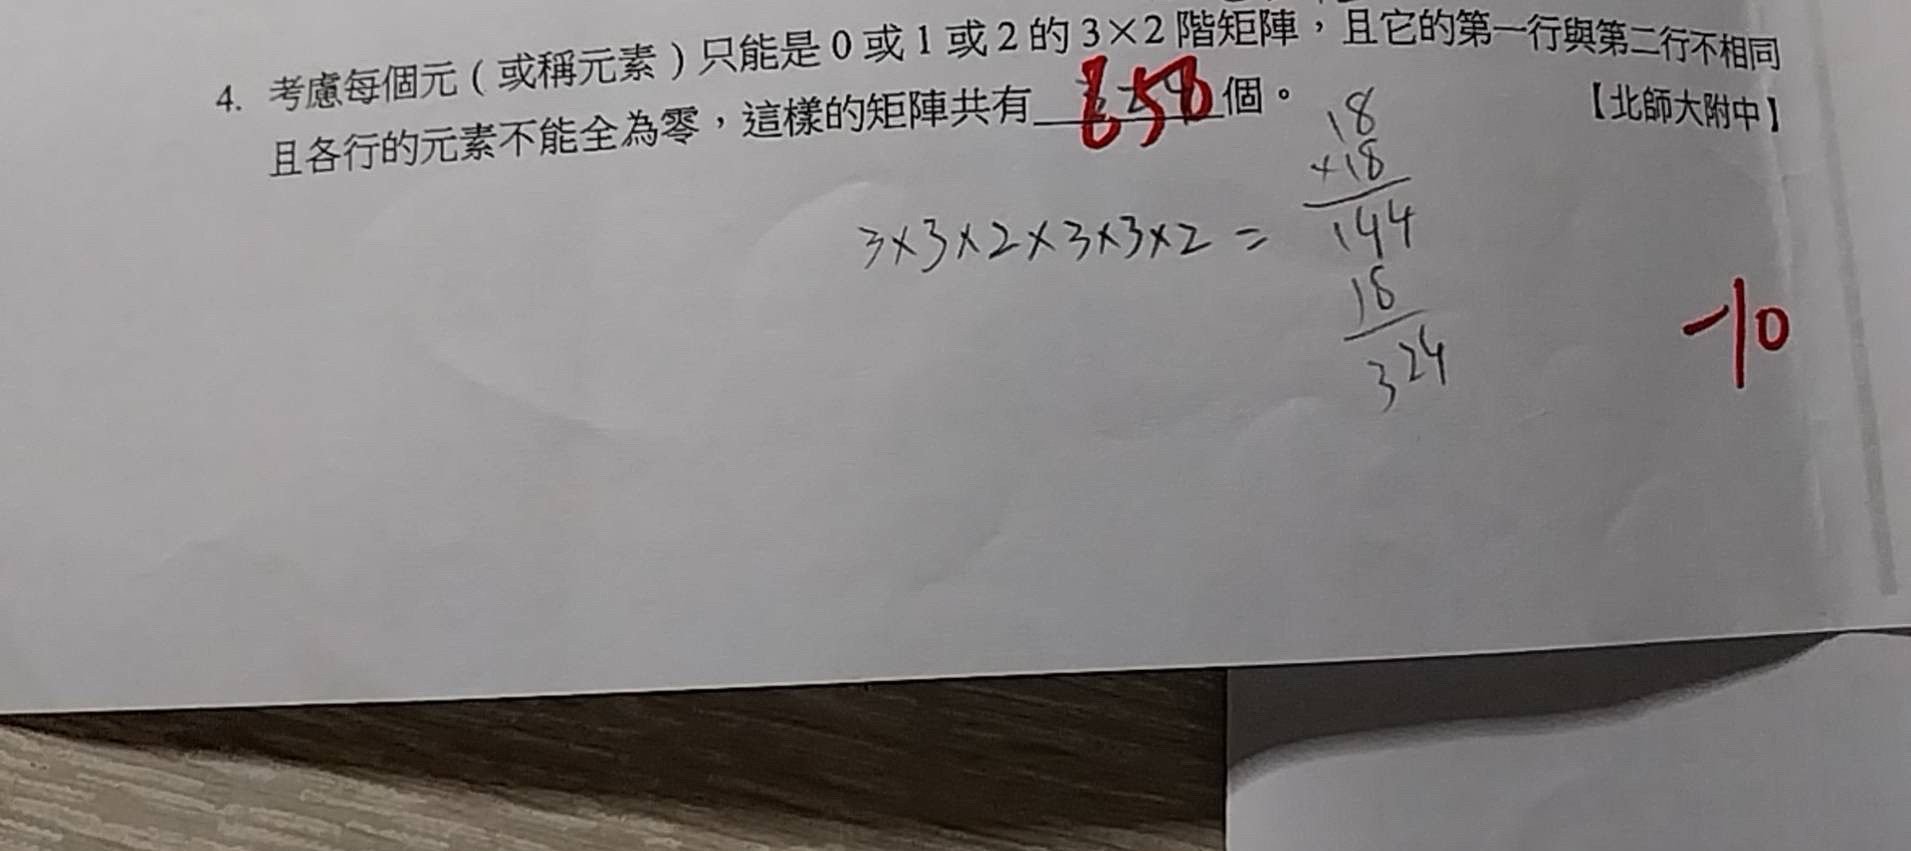 4. 考慮每個元(或稱元素)只能是0或1或2的3×2階矩陣,且它的第一行與第二行不相同
且各行的元素不能全為零,這樣的矩陣共有 650 個。
【北師大附中】
3×3×2×3×3×2=
18
×18
144
18
324
-10